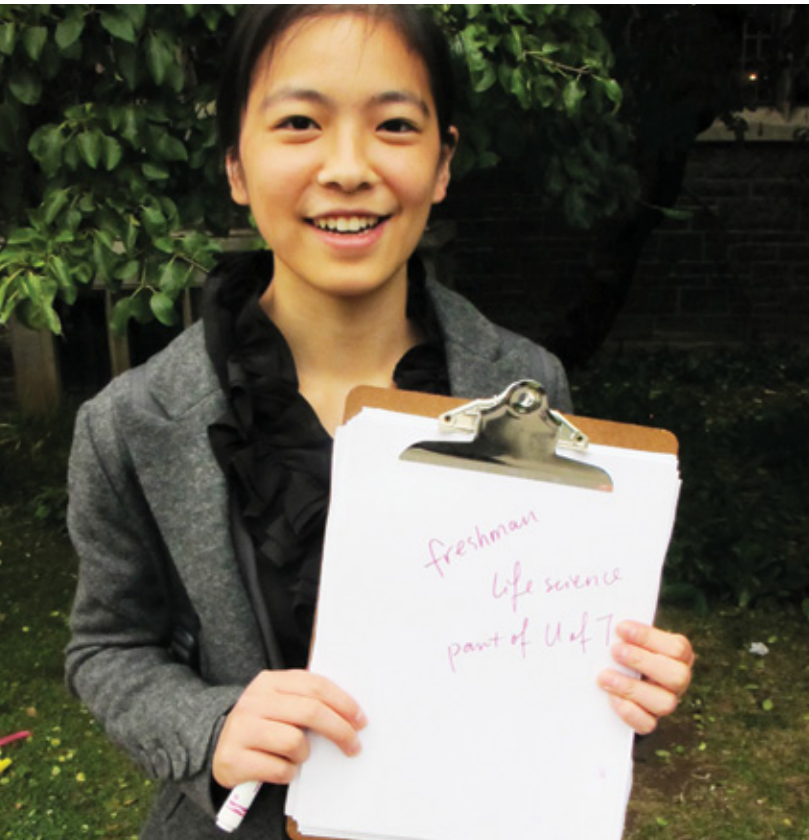 freshman
life science
part of U of T